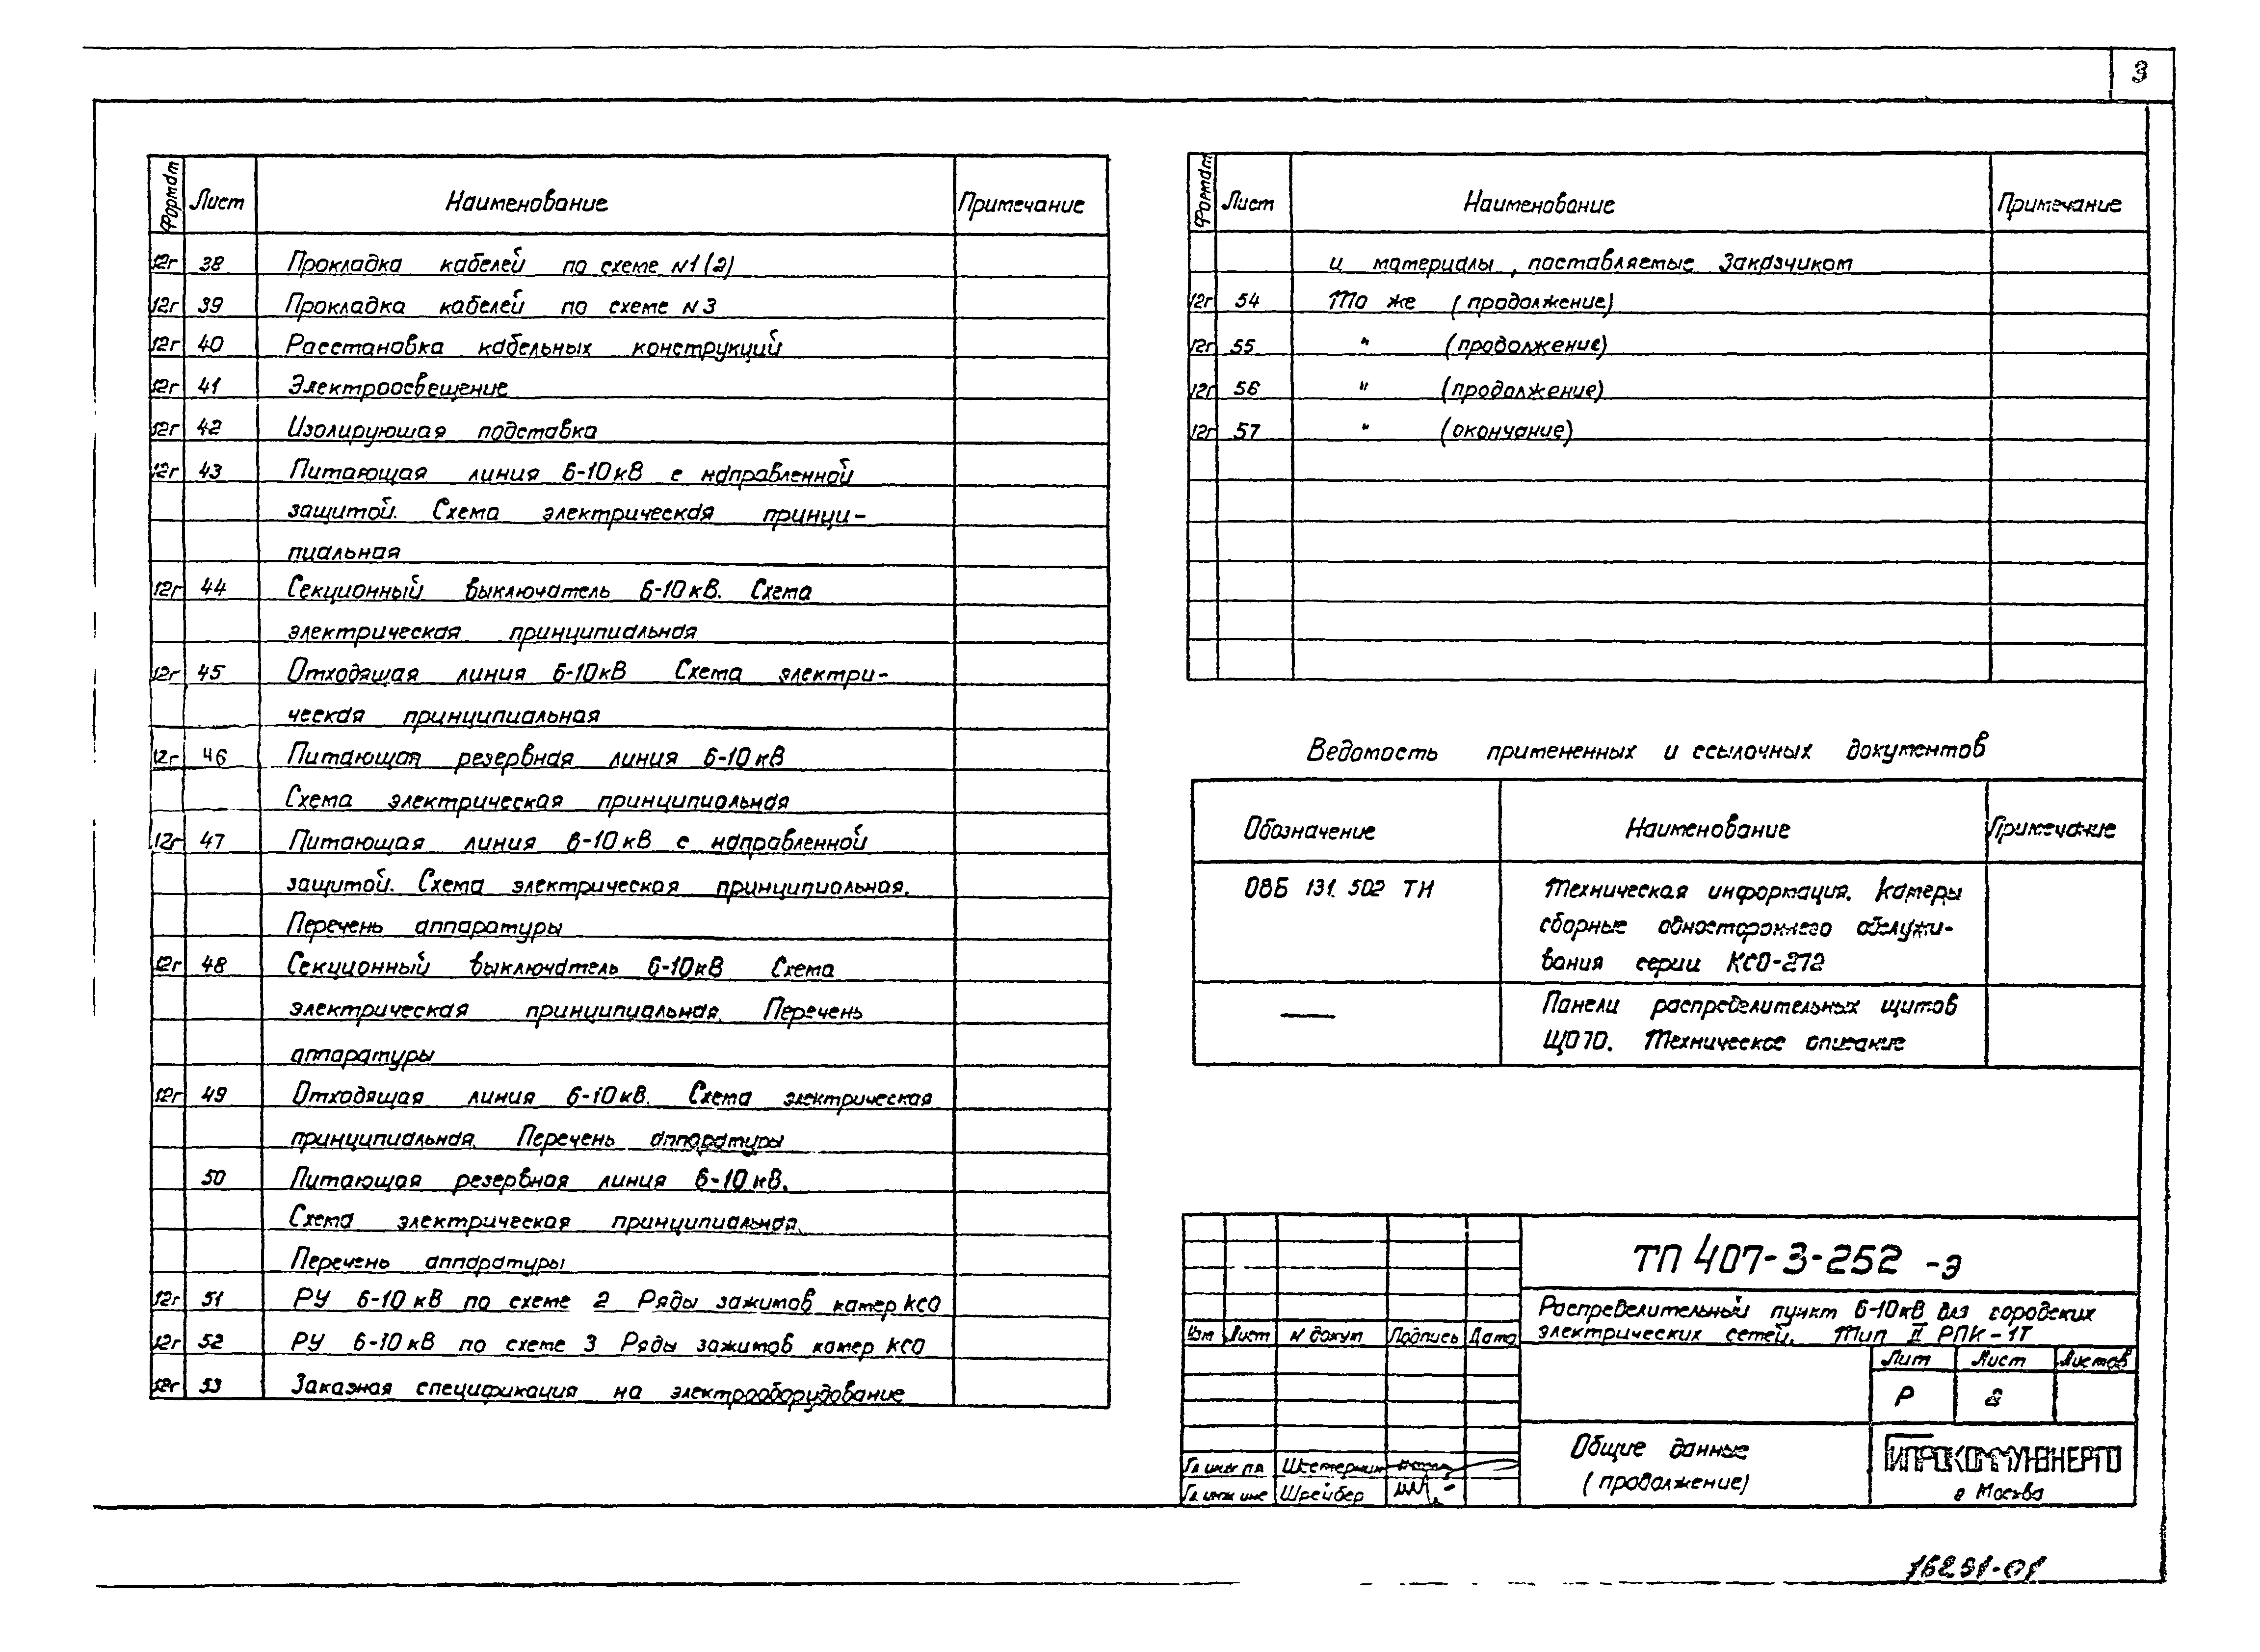 3
Формат Лист Наименование Примечание
12г 38 Прокладка кабелей по схеме N1(2)
12г 39 Прокладка кабелей по схеме N3
12г 40 Расстановка кабельных конструкций
12г 41 Электроосвещение
12г 42 Изолирующая подставка
12г 43 Питающая линия 6-10кВ с направленной
защитой. Схема электрическая принци-
пиальная
12г 44 Секционный выключатель 6-10кВ. Схема
электрическая принципиальная
12г 45 Отходящая линия 6-10кВ Схема электри-
ческая принципиальная
12г 46 Питающая резервная линия 6-10кВ
Схема электрическая принципиальная
12г 47 Питающая линия 6-10кВ с направленной
защитой. Схема электрическая принципиальная.
Перечень аппаратуры
12г 48 Секционный выключатель 6-10кВ Схема
электрическая принципиальная. Перечень
аппаратуры
12г 49 Отходящая линия 6-10кВ. Схема электрическая
принципиальная. Перечень аппаратуры
50 Питающая резервная линия 6-10кВ.
Схема электрическая принципиальная.
Перечень аппаратуры
12г 51 РУ 6-10кВ по схеме 2 Ряды зажимов камер КСО
12г 52 РУ 6-10кВ по схеме 3 Ряды зажимов камер КСО
12г 53 Заказная спецификация на электрооборудование
Формат Лист Наименование Примечание
и материалы, поставляемые Заказчиком
12г 54 То же (продолжение)
12г 55 " (продолжение)
12г 56 " (продолжение)
12г 57 " (окончание)
Ведомость примененных и ссылочных документов
Обозначение Наименование Примечание
0ВБ 131.502 ТИ Техническая информация. Камеры
сборные одностороннего обслужи-
вания серии КСО-272
— Панели распределительных щитов
ЩО70. Техническое описание
ТП 407-3-252 -Э
Распределительный пункт 6-10кВ для городских
электрических сетей. Тип II РПК-1Т
Изм Лист N докум Подпись Дата
Лит Лист Листов
Р 2
Общие данные
(продолжение)
ГИПРОКОММУНЭНЕРГО
г Москва
Гл инж пр
Гл инж Шрейбер
16291-01